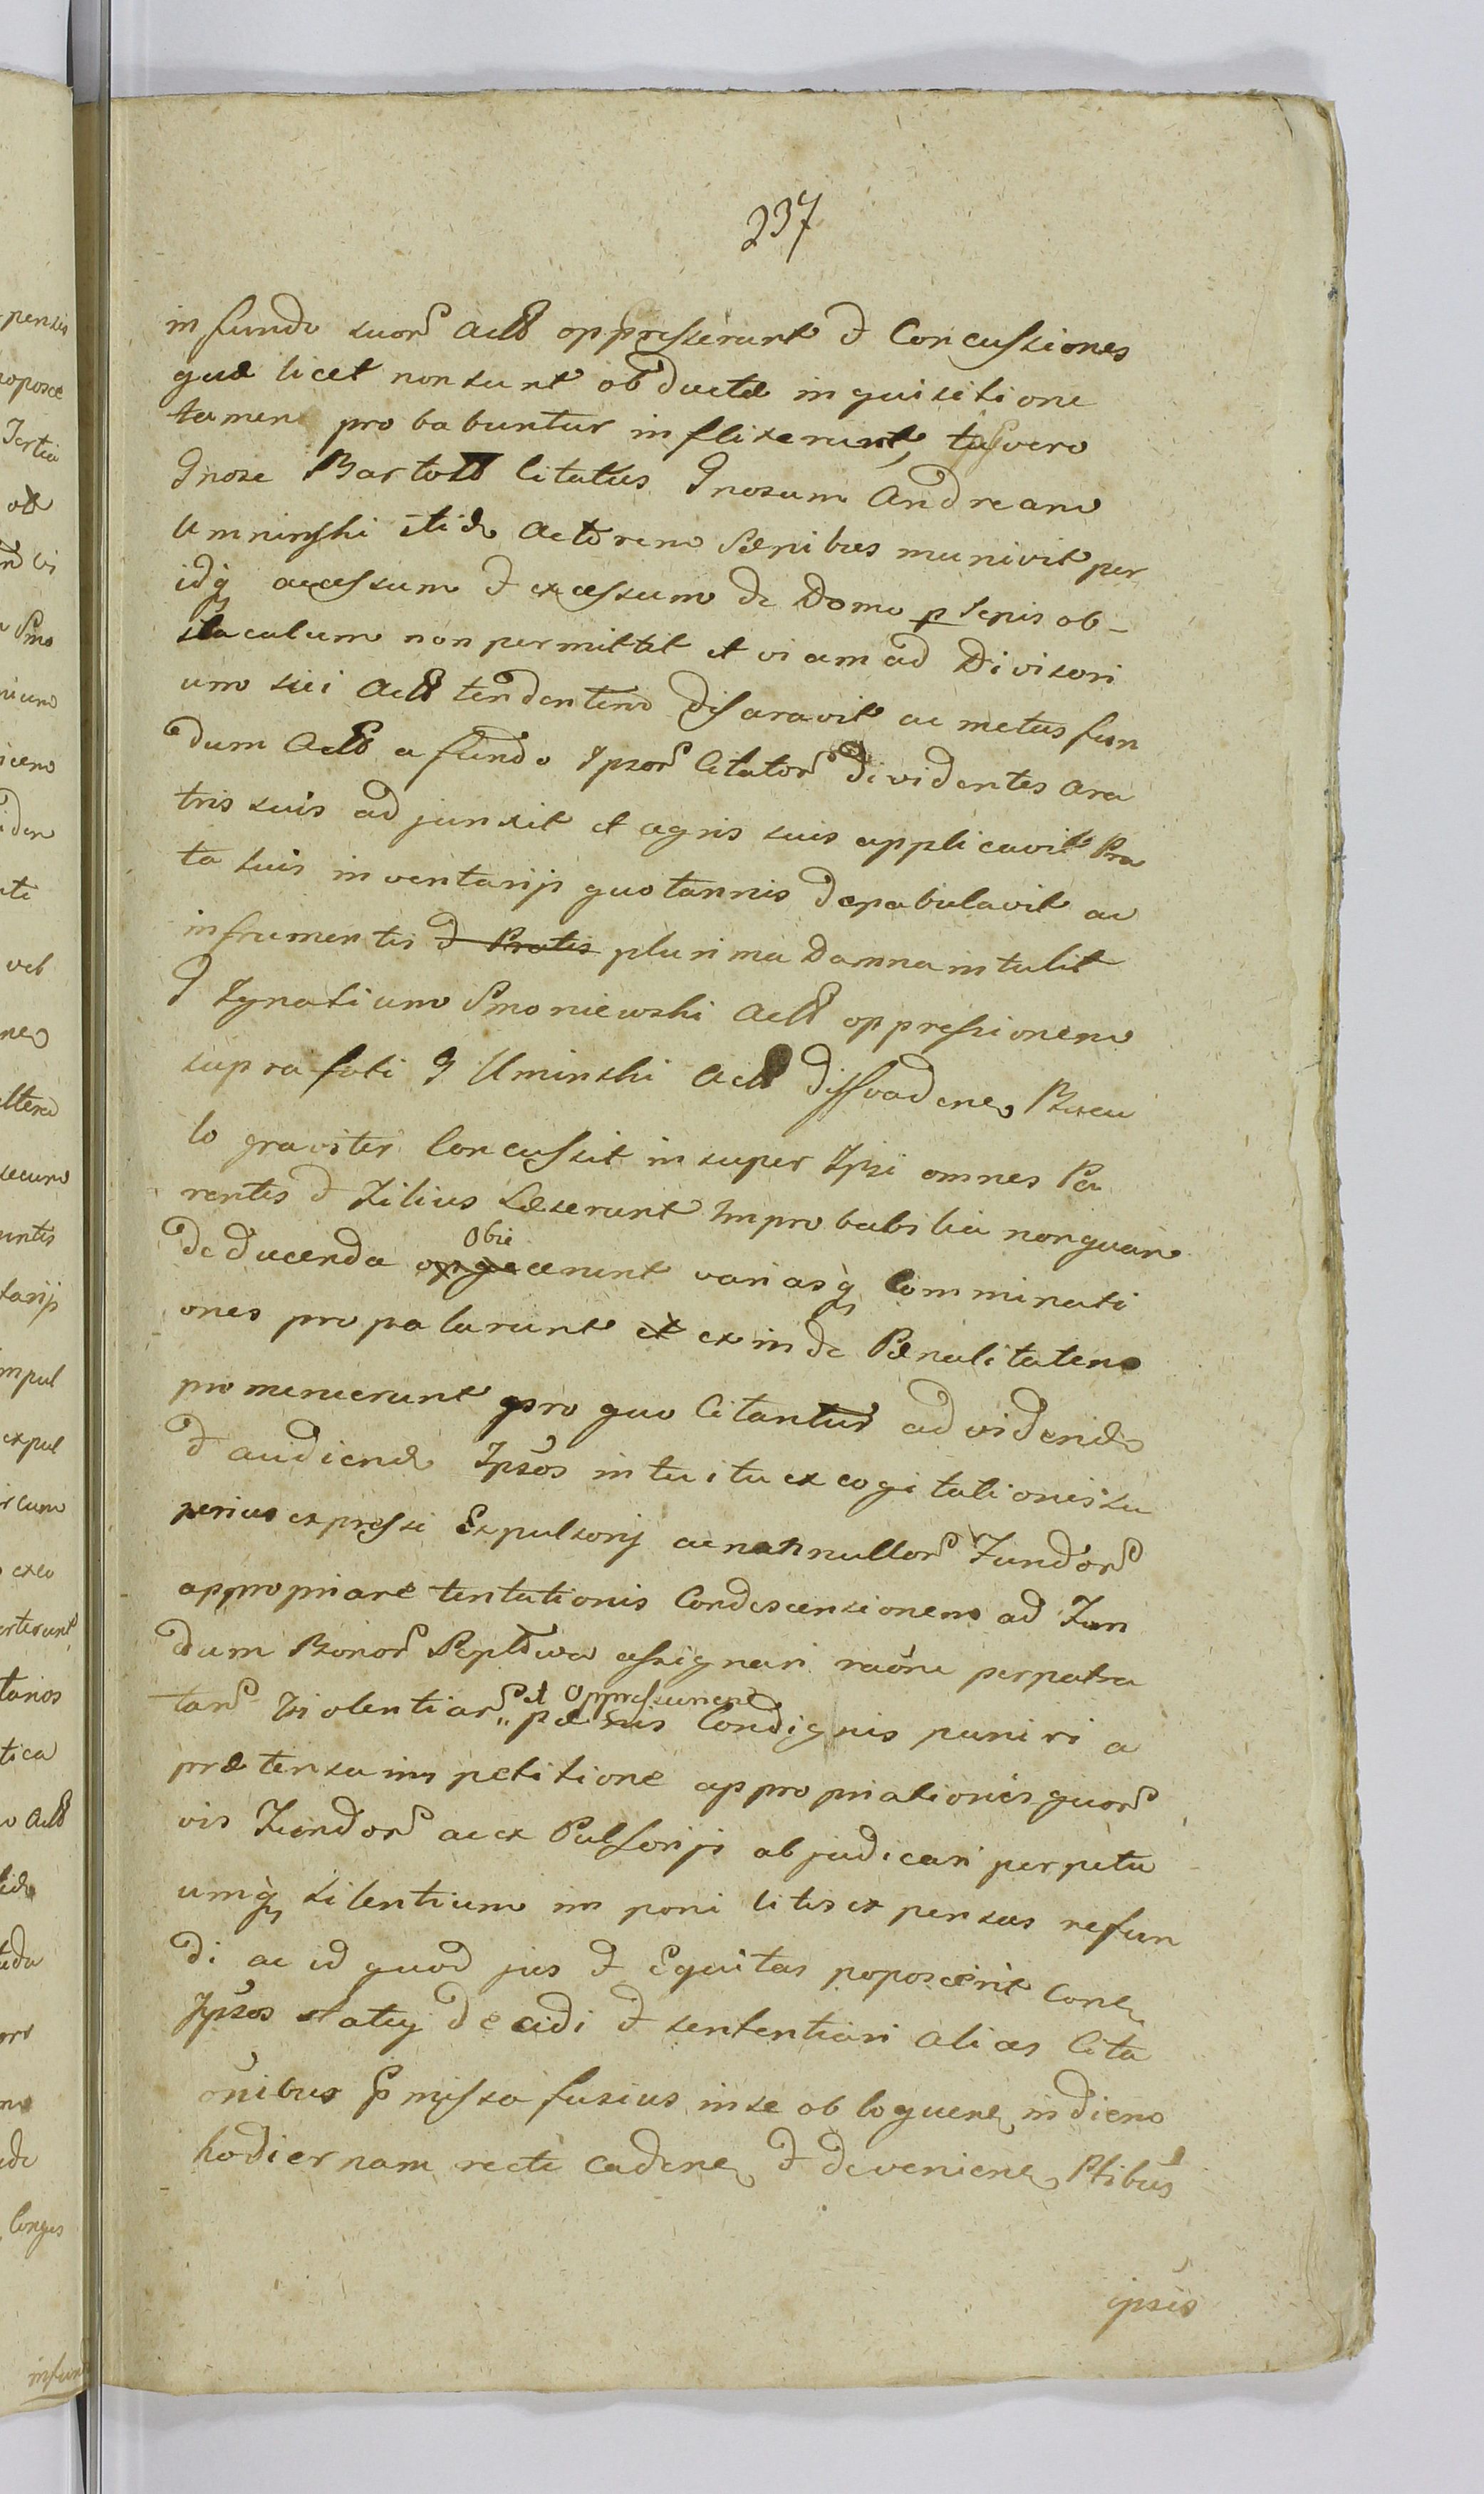 237
in fundo suor Actt oppresserunt & Concussiones
quæ licet non sunt obductæ inquisitione
tamen probabuntur inflixerunt, vero
Gnose Bartold Citatus Gnosum Andream
Umninski itid Actorem Sæpibus munivit per
idq accessum & excessum de Domo p Sepis ob-
staculum non permittit et viam ad Divisori
um sui Actt tendentem disaravit ac metas fun
dum Actt a fundo Ipsor Citator dividentes Ara
tris suis adjunxit et agris suis applicavit Pra
ta suis inventarijs quotannis depabulavit ac
in frumentis & Pratis plurima Damna intulit
G Ignatium Smoniewski Actt oppressionem
suprafati G Uminski Actt dissvaden Bacu
lo graviter Concussit insuper Ipsi omnes Pa
rentes & Filius Læserunt Improbabilia nonquam
deducenda Obie cerunt variasq Comminati
ones propalarunt et exinde Pænalitatem
promeruerunt pro quo Citantur ad videnda
& audiend Ipsos intuitu excogitationis su
perius expressi Expulsorij ac nonnullor Fundor
appropriare tentationis Condescensionem ad Fun
dum Bonor assignari raone perpatra
tar Violentiar et Oppressionem pænis Condignis puniri a
prætensa petitione appropriationis quor
vis Fundor ac ex Pulsorijs abjudicari perpetu
umq silentium imponi litis expensas refun
di ac id quod jus & Equitas poposcerit Con
Ipsos decidi & sententiari alias Cita
onibus Pmissa fusius in se obloquen in diem
hodiernam recte caden & devenien Ptibus
ipsis